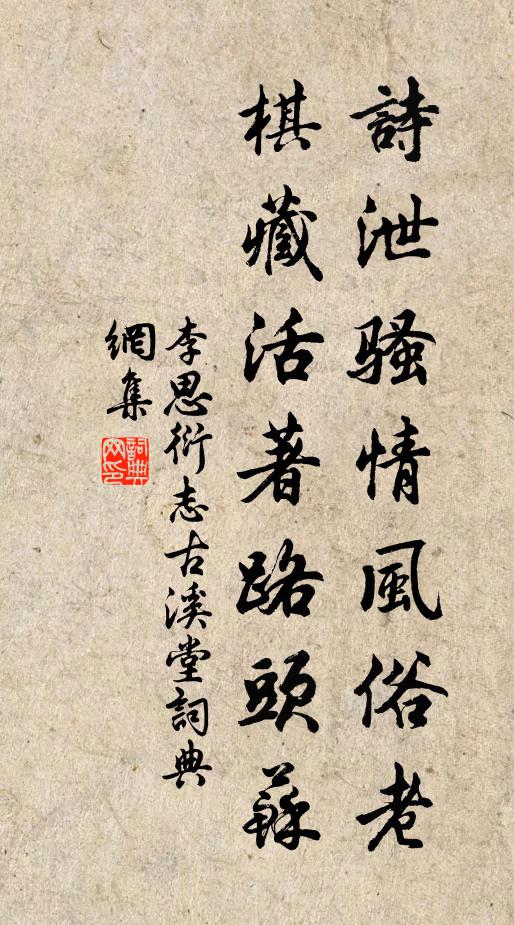 詩泄騷情風俗老
棋藏活著路頭蘇
李思衍志古溪堂詞典
網集
詞典網印